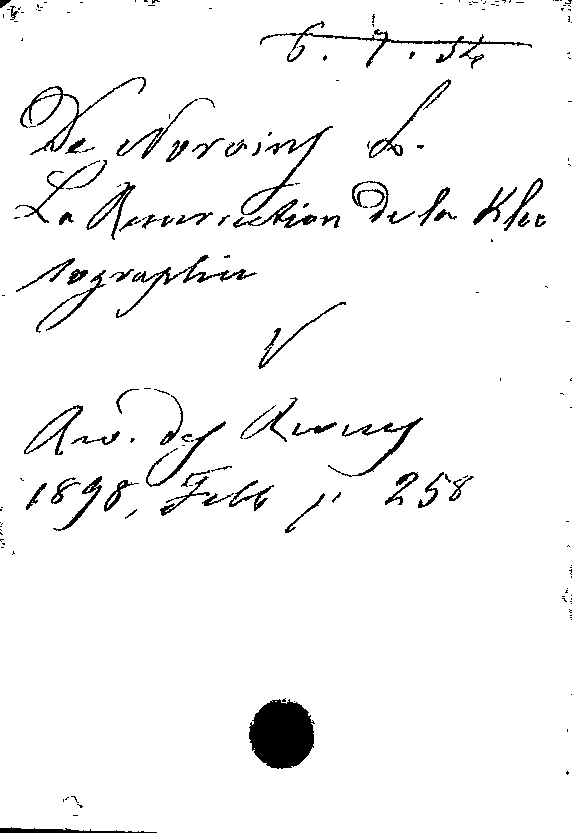 6.7.54
De Norvins L.
La Resurrection de la Klec
tographie
V
Rev. des Revues
1898, Feb p. 258